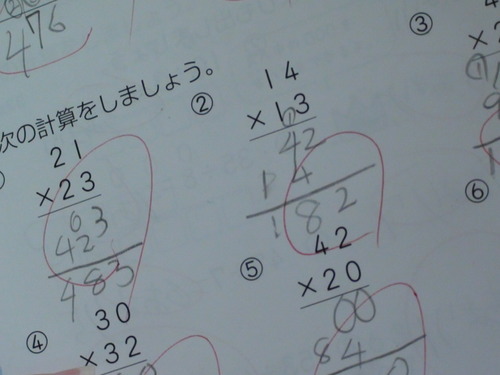 476
③
次の計算をしましょう。
②
21
×23
63
42
483
14
×13
42
14
182
⑥
④
30
×32
⑤
42
×20
00
84